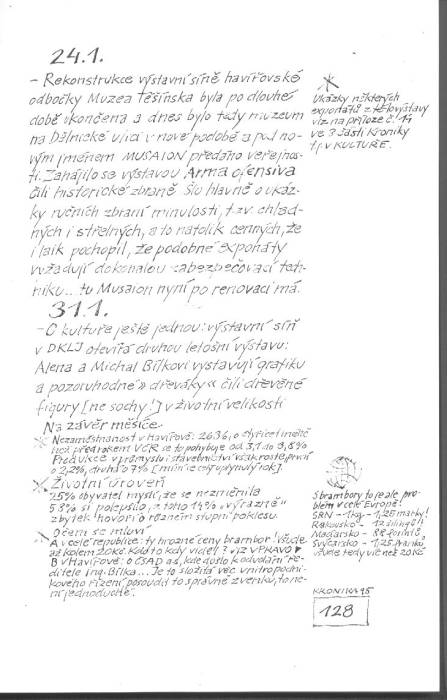 24.1.
- Rekonstrukce výstavní síně havířovské
odbočky Muzea Těšínska byla po dlouhé
době ukončena a dnes bylo tady muzeum
na Dělnické ulici v nové podobě a pod no-
vým jménem MUSAION předáno veřejnos-
ti. Zahájilo se výstavou Arma ofensiva
čili historické zbraně. Šlo hlavně o ukáz-
ky ručních zbraní minulosti, t.zv. chlad-
ných i střelných, a to natolik cenných, že
i laik pochopil, že podobné exponáty
vyžadují dokonalou zabezpečovací tech-
niku... tu Musaion nyní po renovaci má.
Ukázky některých
exponátů z této výstavy
viz na příloze č. 14
ve 3. části kroniky
tj. v KULTUŘE.
31.1.
- O kultuře ještě jednou: výstavní síň
v DKLJ otevírá druhou letošní výstavu:
Alena a Michal Bílkovi vystavují grafiku
a pozoruhodné » dřeváky « čili dřevěné
figury [ne sochy!] v životní velikosti
Na závěr měsíce
Nezaměstnanost v Havířově: 2636, o čtyřicet méně
než před rokem. V ČR se to pohybuje od 3,1 do 3,8%
Produkce v průmyslu i stavebnictví však roste: první
o 2,2%, druhá o 7% [míní se celý uplynulý rok].
Životní úroveň
25% obyvatel myslí, že se nezměnila
58% si polepšilo, z toho 14% „výrazně“
zbytek hovoří o různém stupni poklesu.
O čem se mluví
A v celé republice: ty hrozné ceny brambor! Všude
až kolem 20 Kč. Kdo to kdy viděl? viz VPRAVO
B v Havířově: o ČSAD a.s., kde došlo k odvolání ře-
ditele Ing. Bílka... Je to složitá věc vnitropodni-
kového řízení, posoudit to správně zvenku, to ne-
ní jednoduché.
S brambory to je ale pro-
blém v celé Evropě!
SRN - 1kg - 1,25 marky!
Rakousko - 12 šilinků!
Maďarsko - 88 forintů
Švýcarsko - 1,25 franku,
všude tedy víc než 20 Kč
KRONIKA 95
128